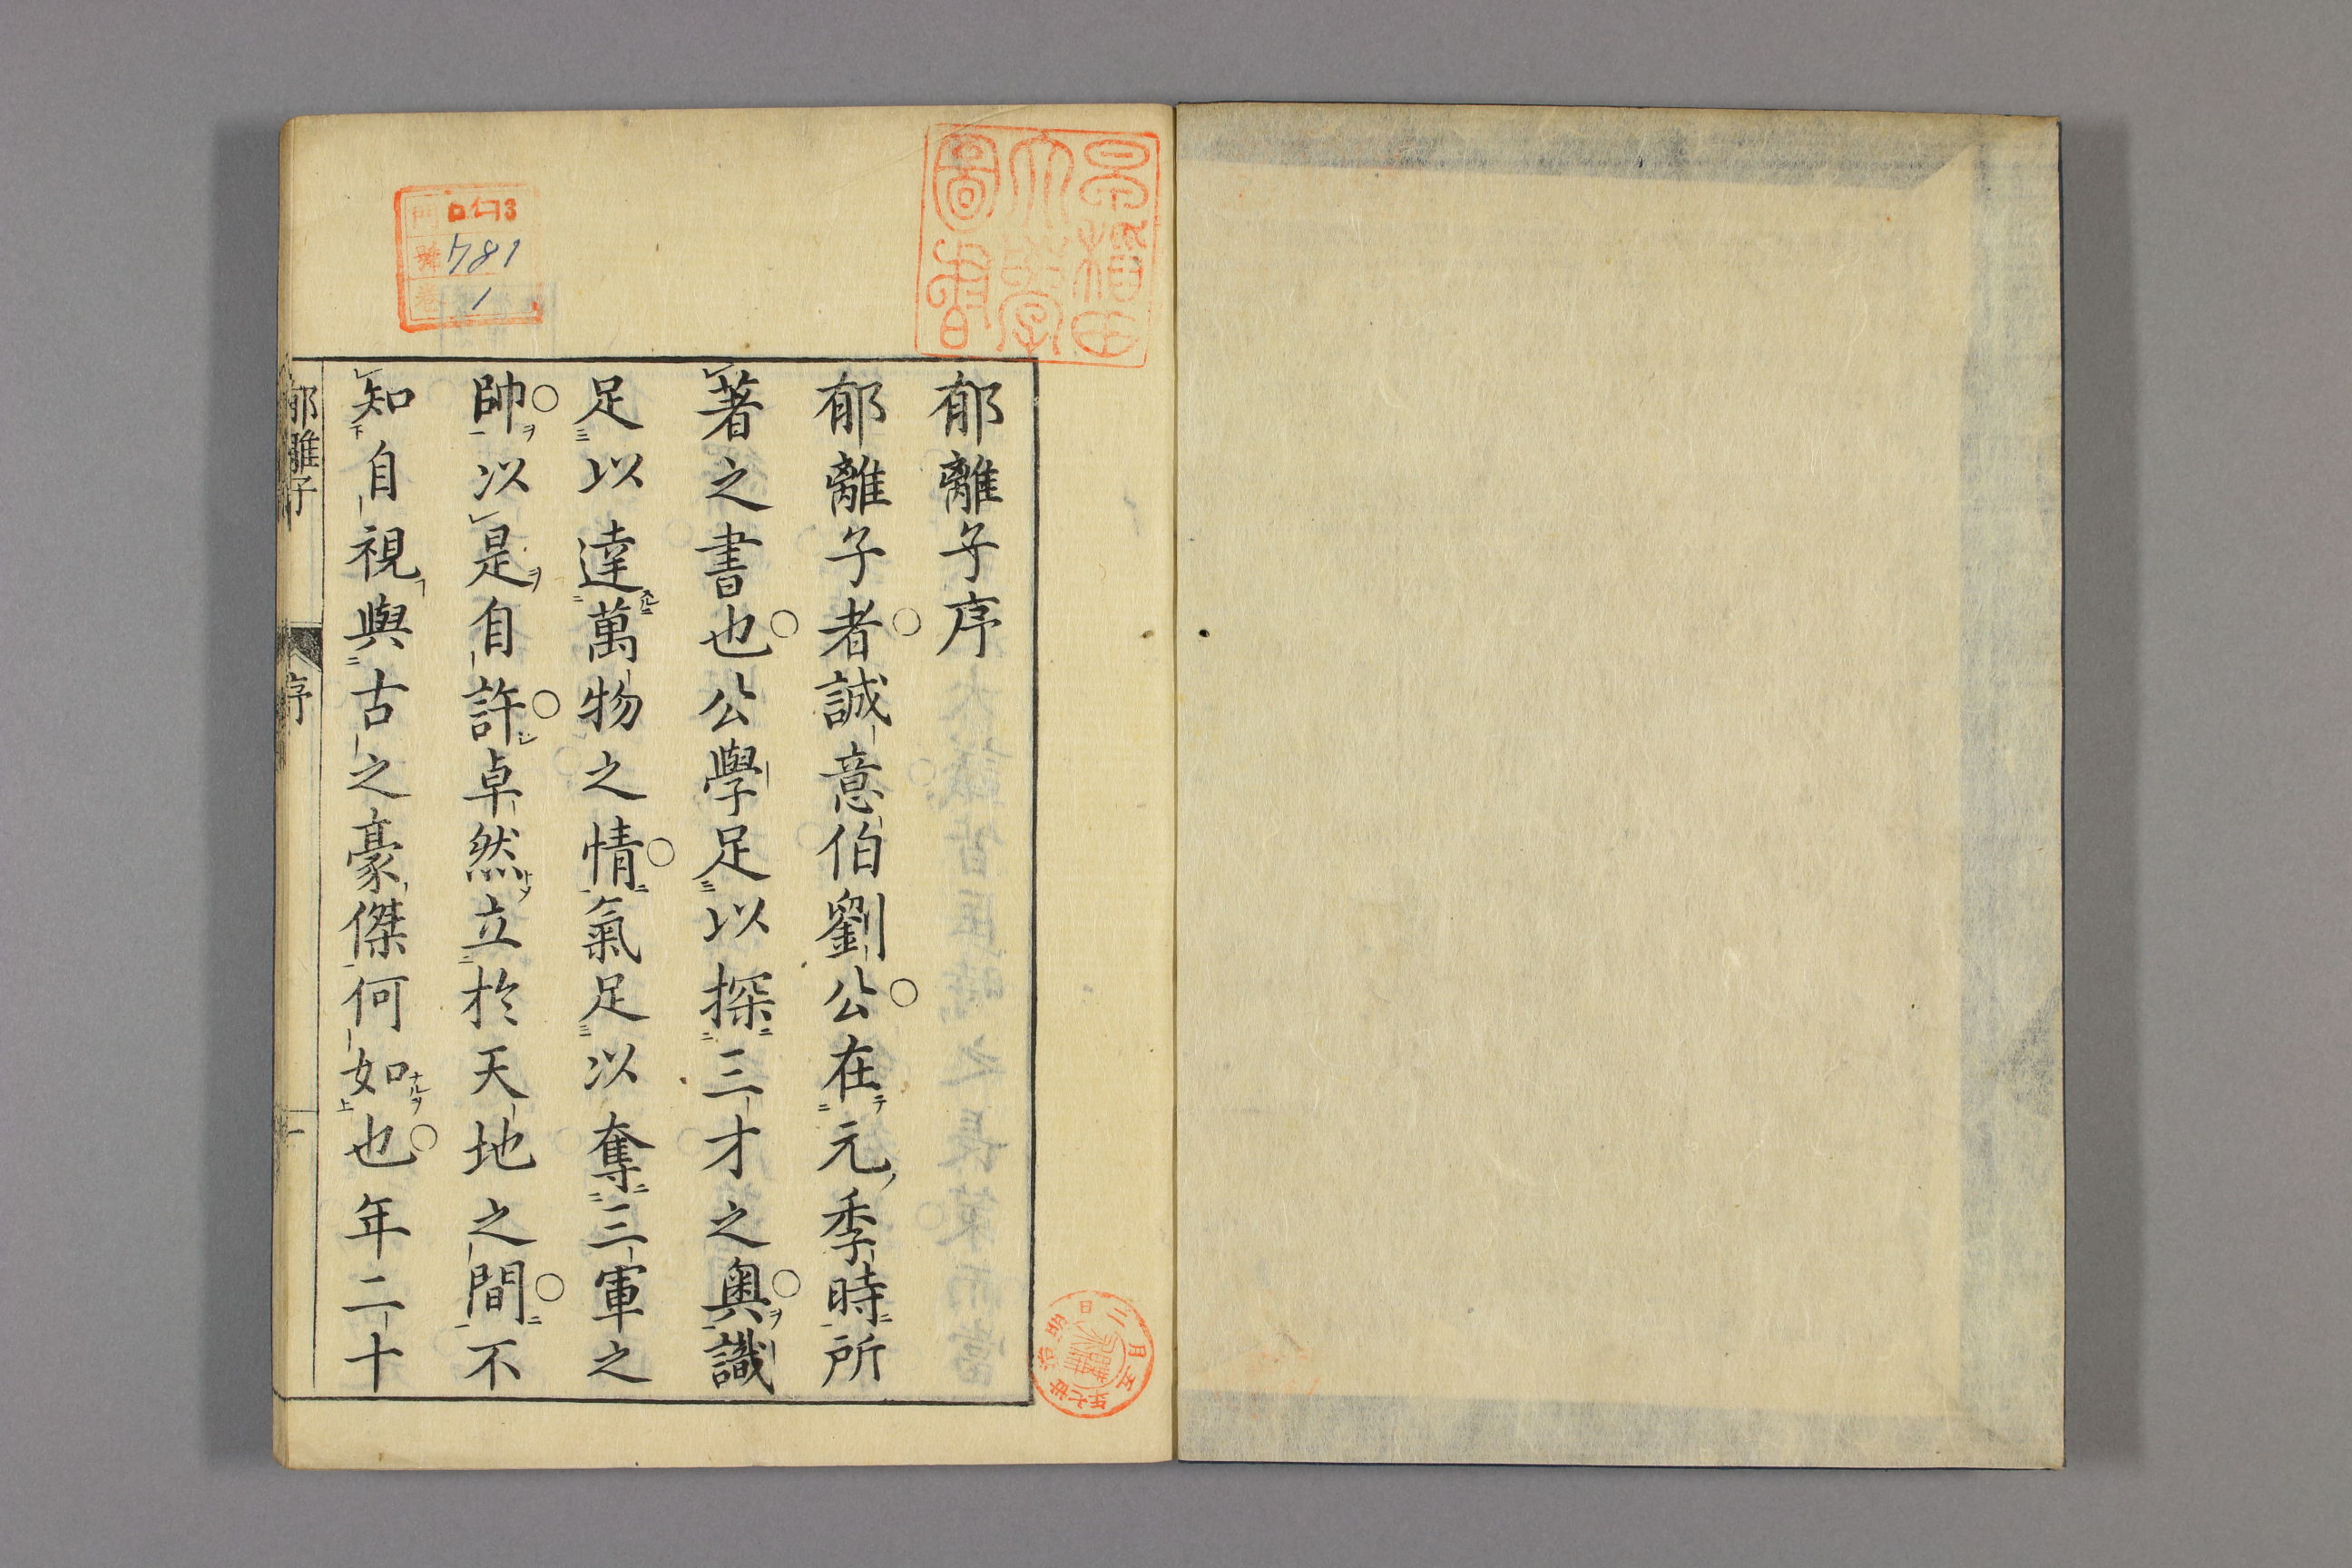 郁離子序
郁離子者誠意伯劉公在元季時所
著之書也公學足以探三才之奧識
足以達萬物之情氣足以奪三軍之
帥以是自許卓然立於天地之間不
知自視與古之豪傑何如也年二十
郁離子
序
一
早稻田
大學
圖書
門 ロ13
號 781
卷 1
明治廿七年五月二日